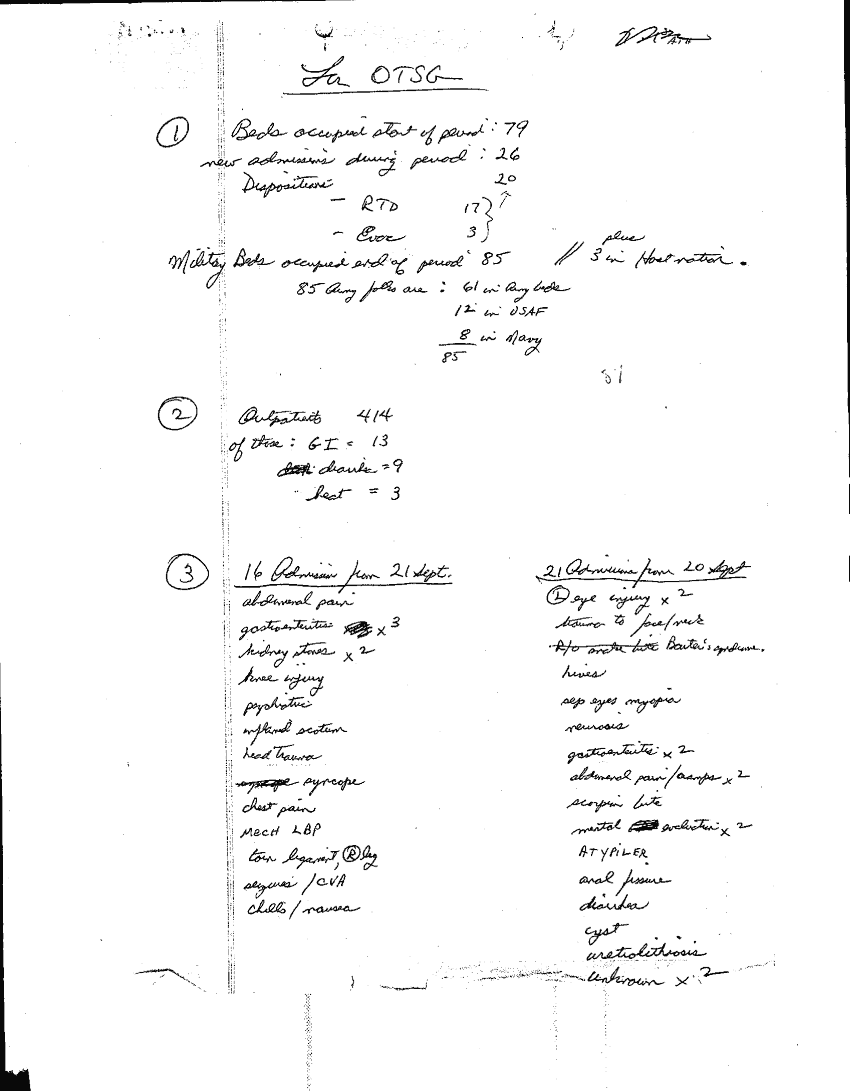 For OTSG
① Beds occupied start of period : 79
new admissions during period : 26
Dispositions 20
- RTD 17
- Evac 3
plus
Military Beds occupied end of period 85 // 3 in Host nation.
85 Army folks are : 61 in Army beds
12 in USAF
8 in Navy
85
81
② Outpatients 414
of those : GI = 13
diarrhea = 9
heat = 3
③ 16 Admission from 21 Sept.
abdominal pain
gastroenteritis x 3
kidney stones x 2
knee injury
psychiatric
inflamd scotum
head trauma
syncope
chest pain
MECH LBP
torn ligament, Ⓡ leg
seizures / CVA
chills / nausea
21 Admissions from 20 Sept
Ⓛ eye injury x 2
trauma to face/neck
R/O snake bite Barter's syndrome.
hives
sep eyes myopia
neurosis
gastroenteritis x 2
abdominal pain/cramps x 2
scorpion bite
mental evaluation x 2
ATYPILER
anal fissure
diarrhea
cyst
uretrolithiosis
unknown x 2